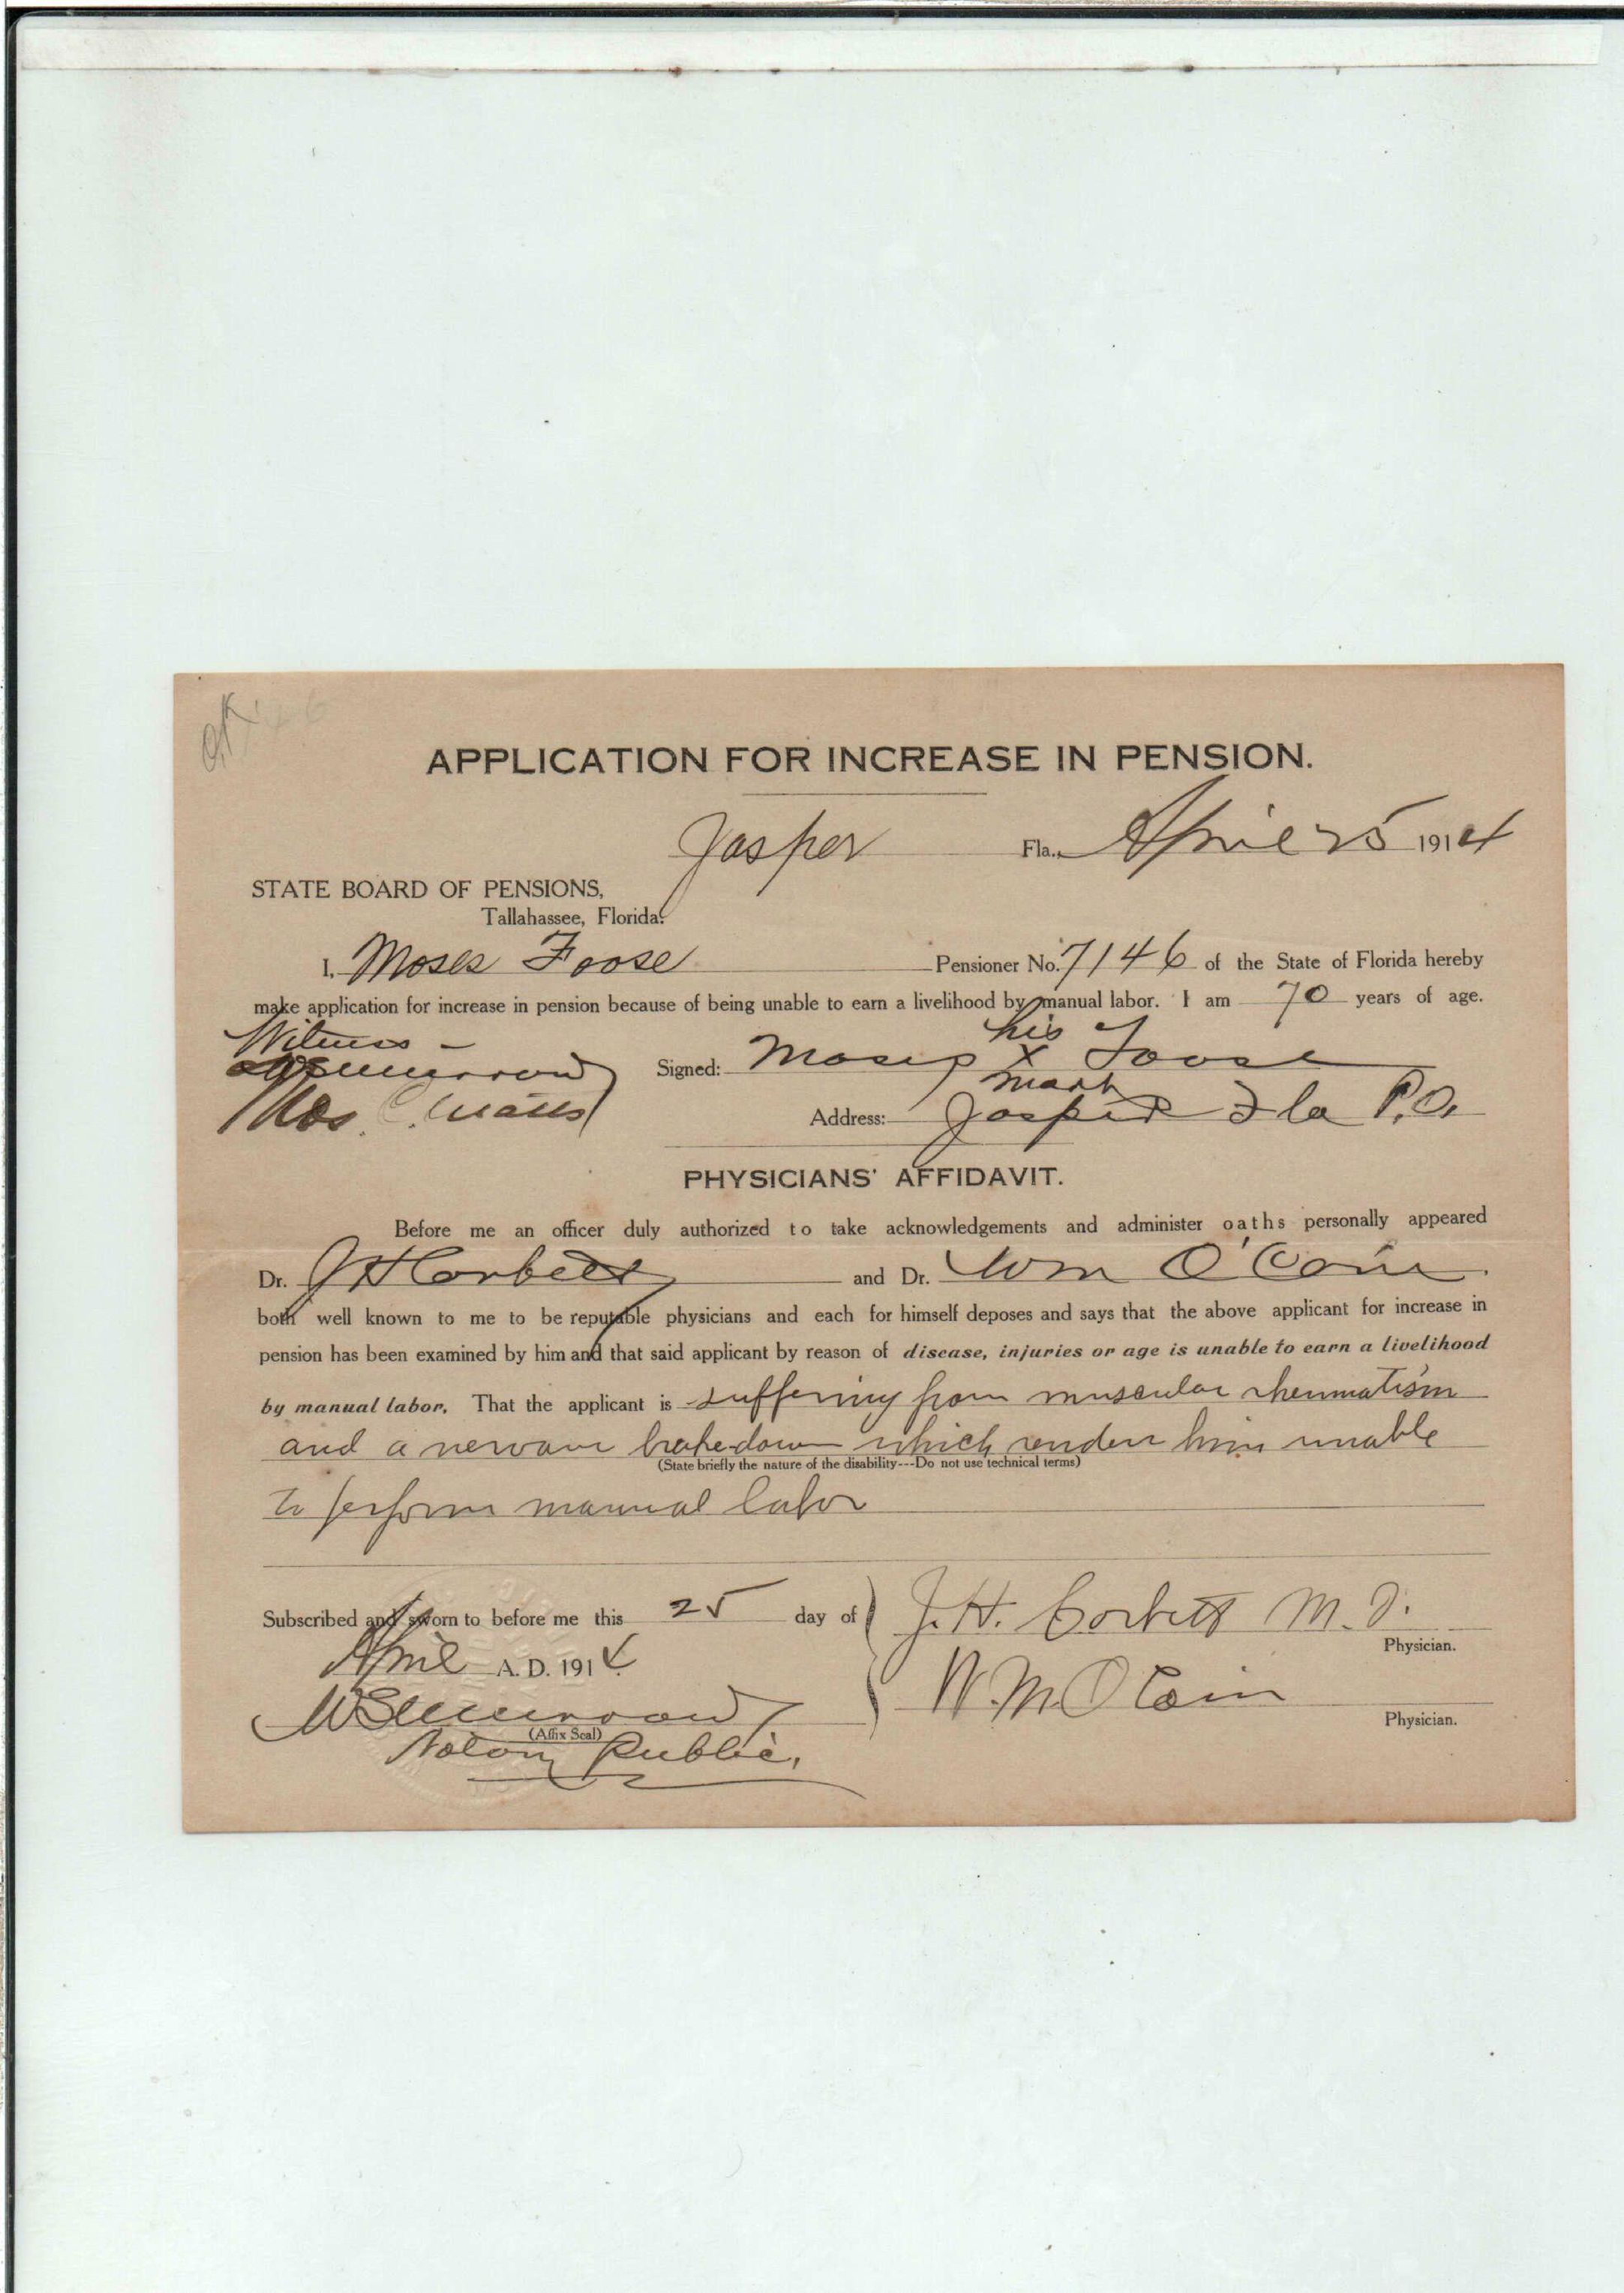 OK
APPLICATION FOR INCREASE IN PENSION.
Jasper Fla., April 25 1914
STATE BOARD OF PENSIONS,
Tallahassee, Florida.
I, Moses Foose Pensioner No. 7146 of the State of Florida hereby
make application for increase in pension because of being unable to earn a livelihood by manual labor. I am 70 years of age.
Witness -
Signed: Moses his x mark Foose
Thos. C. Watts
Address: Jasper Fla P.O.
PHYSICIANS' AFFIDAVIT.
Before me an officer duly authorized to take acknowledgements and administer oaths personally appeared
Dr. J H Corbett and Dr. Wm O'Cain
both well known to me to be reputable physicians and each for himself deposes and says that the above applicant for increase in
pension has been examined by him and that said applicant by reason of disease, injuries or age is unable to earn a livelihood
by manual labor. That the applicant is suffering from muscular rheumatism
and a nervous brake-down which renders him unable
(State briefly the nature of the disability---Do not use technical terms)
to perform manual labor
Subscribed and sworn to before me this 25 day of
April A. D. 1914
J. H. Corbett M. D.
Physician.
W. M. O Cain
Physician.
(Affix Seal)
Notary Public.